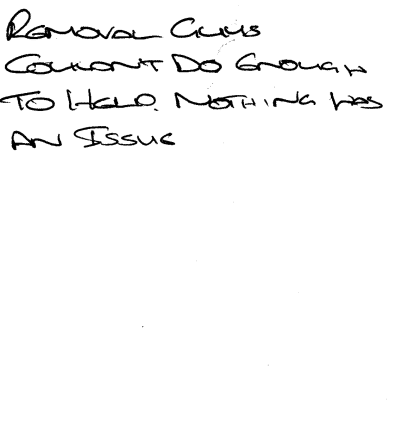 REMOVAL GUYS
COULDN'T DO ENOUGH
TO HELP. NOTHING WAS
AN ISSUE